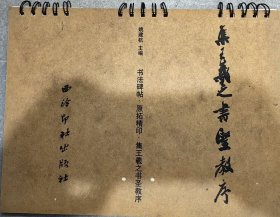 集王羲之书聖教序
趙國栻 主编
书法碑帖 原拓精印·集王羲之书圣教序
西泠印社出版社